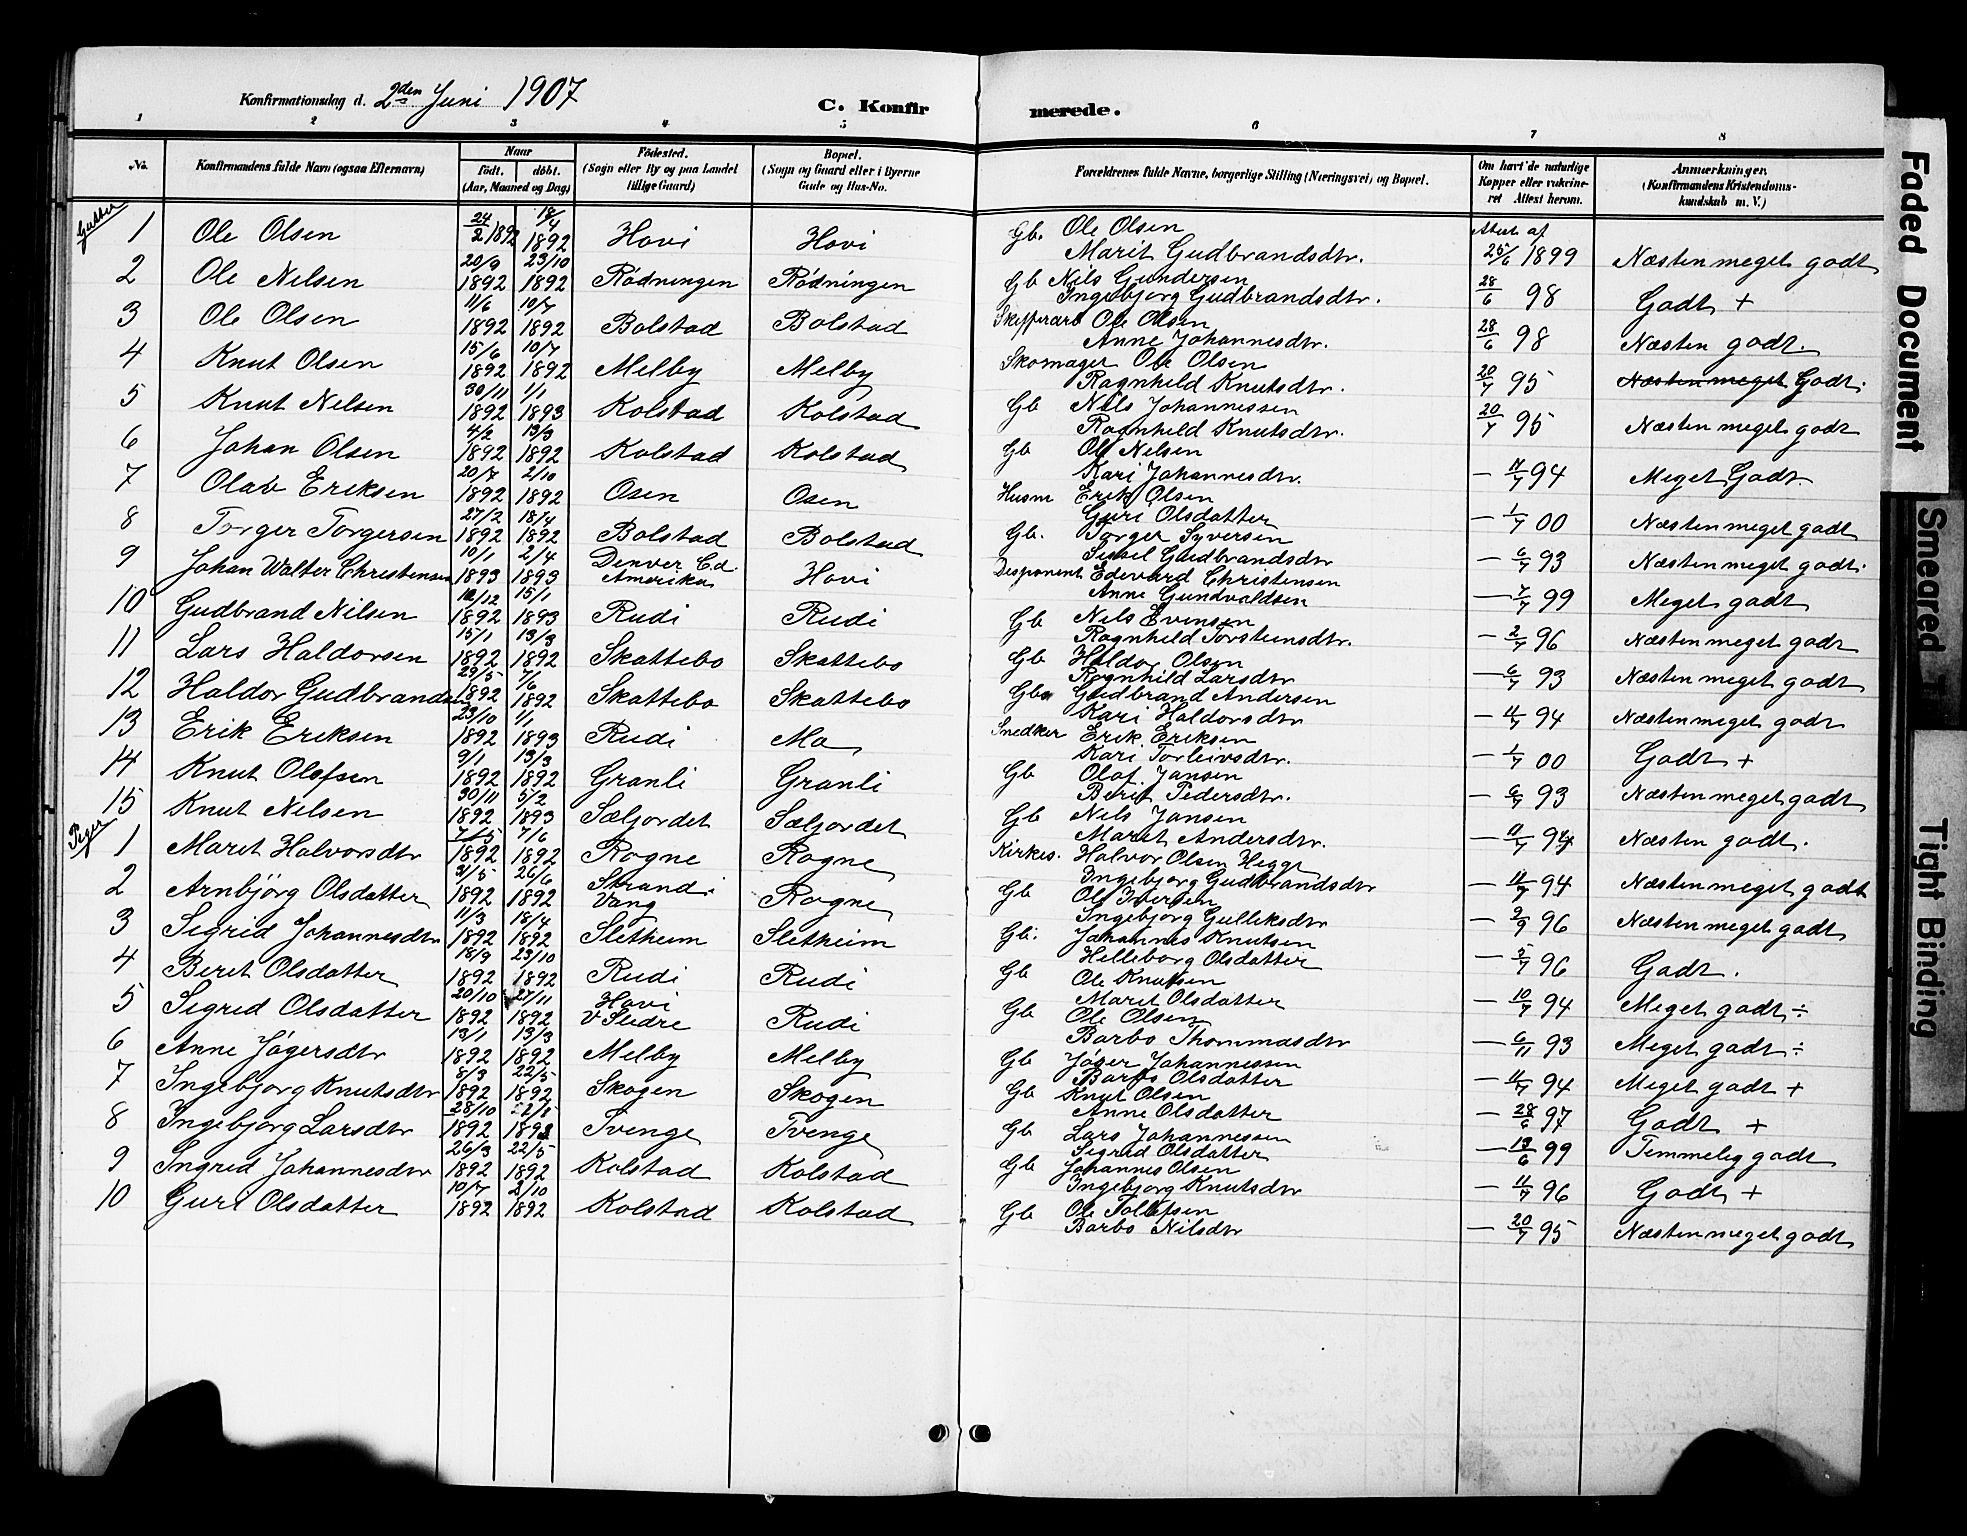 Konfirmationsdag d. 2den Juni 1907 C. Konfir merede.
1 2 3 4 5 6 7 8
No. Konfirmandens fulde Navn (ogsaa Efternavn) Naar födt. döbt. (Aar, Maaned og Dag) Födested. (Sogn eller By og paa Landet tillige Gaard) Bopæl. (Sogn og Gaard eller i Byerne Gade og Hus-No. Forældrenes fulde Navne, borgerlige Stilling (Næringsvei) og Bopæl. Om havt de naturlige Kopper eller vakcineret Attest herom. Anmærkninger. (Konfirmandens Kristendomskundskab m. V.)
Gutter
1 Ole Olsen 24/2 1892 18/4 1892 Hovi Hovi Gb. Ole Olsen Marit Gudbrandsdtr. Attest af 25/6 1899 Næsten meget godt
2 Ole Nilsen 20/9 1892 23/10 1892 Rödningen Rödningen Gb Nils Gundersen Ingebjörg Gudbrandsdtr. 28/6 98 Godt +
3 Ole Olsen 11/6 1892 10/7 1892 Bolstad Bolstad Ole Olsen Anne Johannesdtr. 28/6 98 Næsten godt.
4 Knut Olsen 15/6 1892 10/7 1892 Melby Melby Skomager Ole Olsen Ragnhild Knutsdtr. 20/7 95 Næsten meget Godt.
5 Knut Nilsen 30/11 1892 1/1 1893 Kolstad Kolstad Gb Nils Johannessen Ragnhild Knutsdtr. 20/7 95 Næsten meget godt
6 Johan Olsen 4/2 1892 13/3 1892 Kolstad Kolstad Gb Ole Nilsen Kari Johannesdtr. — 11/7 94 Meget Godt
7 Olav Eriksen 20/7 1892 2/10 1892 Osen Osen Husm Erik Olsen Guri Olsdatter — 1/7 00 Næsten meget godt
8 Torger Torgersen 27/2 1892 18/4 1892 Bolstad Bolstad Gb. Torger Syversen Sissel Gudbrandsdtr — 6/7 93 Næsten meget godt.
9 Johan Walter Christensen 10/1 1893 2/4 1893 Denver C.d. Amerika Hovi Disponent Edevard Christensen Anne Gundvaldsen — 7/7 99 Meget godt
10 Gudbrand Nilsen 12/12 1892 15/1 1893 Rudi Rudi Gb Nils Evensen Ragnhild Torsteinsdtr. — 2/7 96 Næsten meget godt
11 Lars Haldorsen 15/1 1892 13/3 1892 Skattebo Skattebo Gb Haldor Olsen Ragnhild Larsdtr — 6/7 93 Næsten meget godt
12 Haldor Gudbrandsen 29/5 1892 7/6 1892 Skattebo Skattebo Gudbrand Andersen Kari Haldorsdtr — 11/7 94 Næsten meget godt
13 Erik Eriksen 23/10 1892 1/1 1893 Rudi Mo Snedker Erik Eriksen Kari Torleivsdtr. — 1/7 00 Godt +
14 Knut Olafsen 9/1 1892 13/3 1892 Granli Granli Gb Olaf Jansen Berit Pedersdtr. — 6/7 93 Næsten meget godt
15 Knut Nilsen 30/11 1892 5/2 1893 Sæljordet Sæljordet Gb Nils Jansen Marit Andersdtr. — 11/7 94 Næsten godt.
Piger
1 Marit Halvorsdtr 7/5 1892 7/6 1892 Rogne Rogne Kirkes. Halvor Olsen Hegge Ingebjörg Gudbrandsdtr — 11/7 94 Næsten meget godt
2 Arnbjörg Olsdatter 2/5 1892 26/6 1892 Strandi Vang Rogne Gb Ole Iversen Ingebjörg Gulleksdtr — 2/9 96 Næsten meget godt
3 Sigrid Johannesdtr 11/3 1892 18/4 1892 Sletheim Sletheim Gb. Johannes Knutsen Helleborg Olsdatter — 5/7 96 Godt.
4 Beret Olsdatter 18/9 1892 23/10 1892 Rudi Rudi Gb Ole Knutsen Marit Olsdatter — 10/7 94 Meget godt ÷
5 Sigrid Olsdatter 20/10 1892 27/11 1892 Hovi V Slidre Rudi Gb Ole Olsen Barbo Thommasdtr — 6/11 93 Meget godt ÷
6 Anne Jögersdtr 13/1 1892 13/3 1892 Melby Melby Gb Jöger Johannessen Barbo Olsdatter — 11/7 94 Meget godt +
7 Ingebjörg Knutsdtr 8/3 1892 22/5 1892 Skogen Skogen Gb Knut Olsen Anne Olsdatter — 28/6 97 Godt +
8 Ingebjörg Larsdtr 28/10 1892 1893 Tvenge Tvenge Gb Lars Johannessen Sigrid Olsdatter — 13/6 99 Temmelig godt
9 Ingrid Johannesdtr 26/3 1892 22/5 1892 Kolstad Kolstad Gb Johannes Olsen Ingebjörg Knutsdtr — 11/7 96 Godt +
10 Guri Olsdatter 10/7 1892 2/10 1892 Kolstad Kolstad Gb Ole Tollefsen Barbo Nilsdtr — 20/7 95 Næsten meget godt
Faded Document
Smeared T
Tight Binding